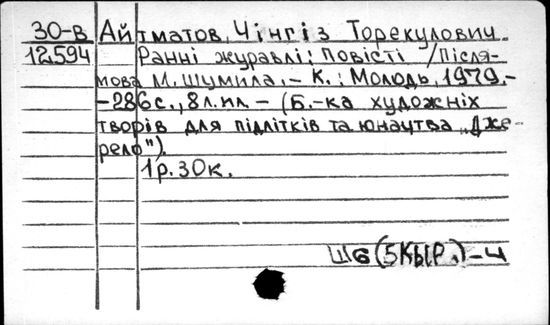 30-в Айтматов, Чінгіз Торекулович.
12594 Ранні журавлі: Повісті /Після-
мова М. Шумила. - К.: Молодь, 1979. -
- 286 с., 8 л. іл. - (Б.-ка художніх
творів для підлітків та юнацтва „Дже-
рело").
1р. 30к.
Ш6(5КЫР.)-4